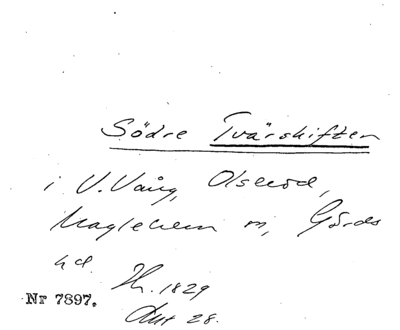 Södre Tvärskiften
i V. Vång, Olseröd,
Maglehem sn, Gärds
hd. Hr. 1829
Akt 28.
Nr 7897.